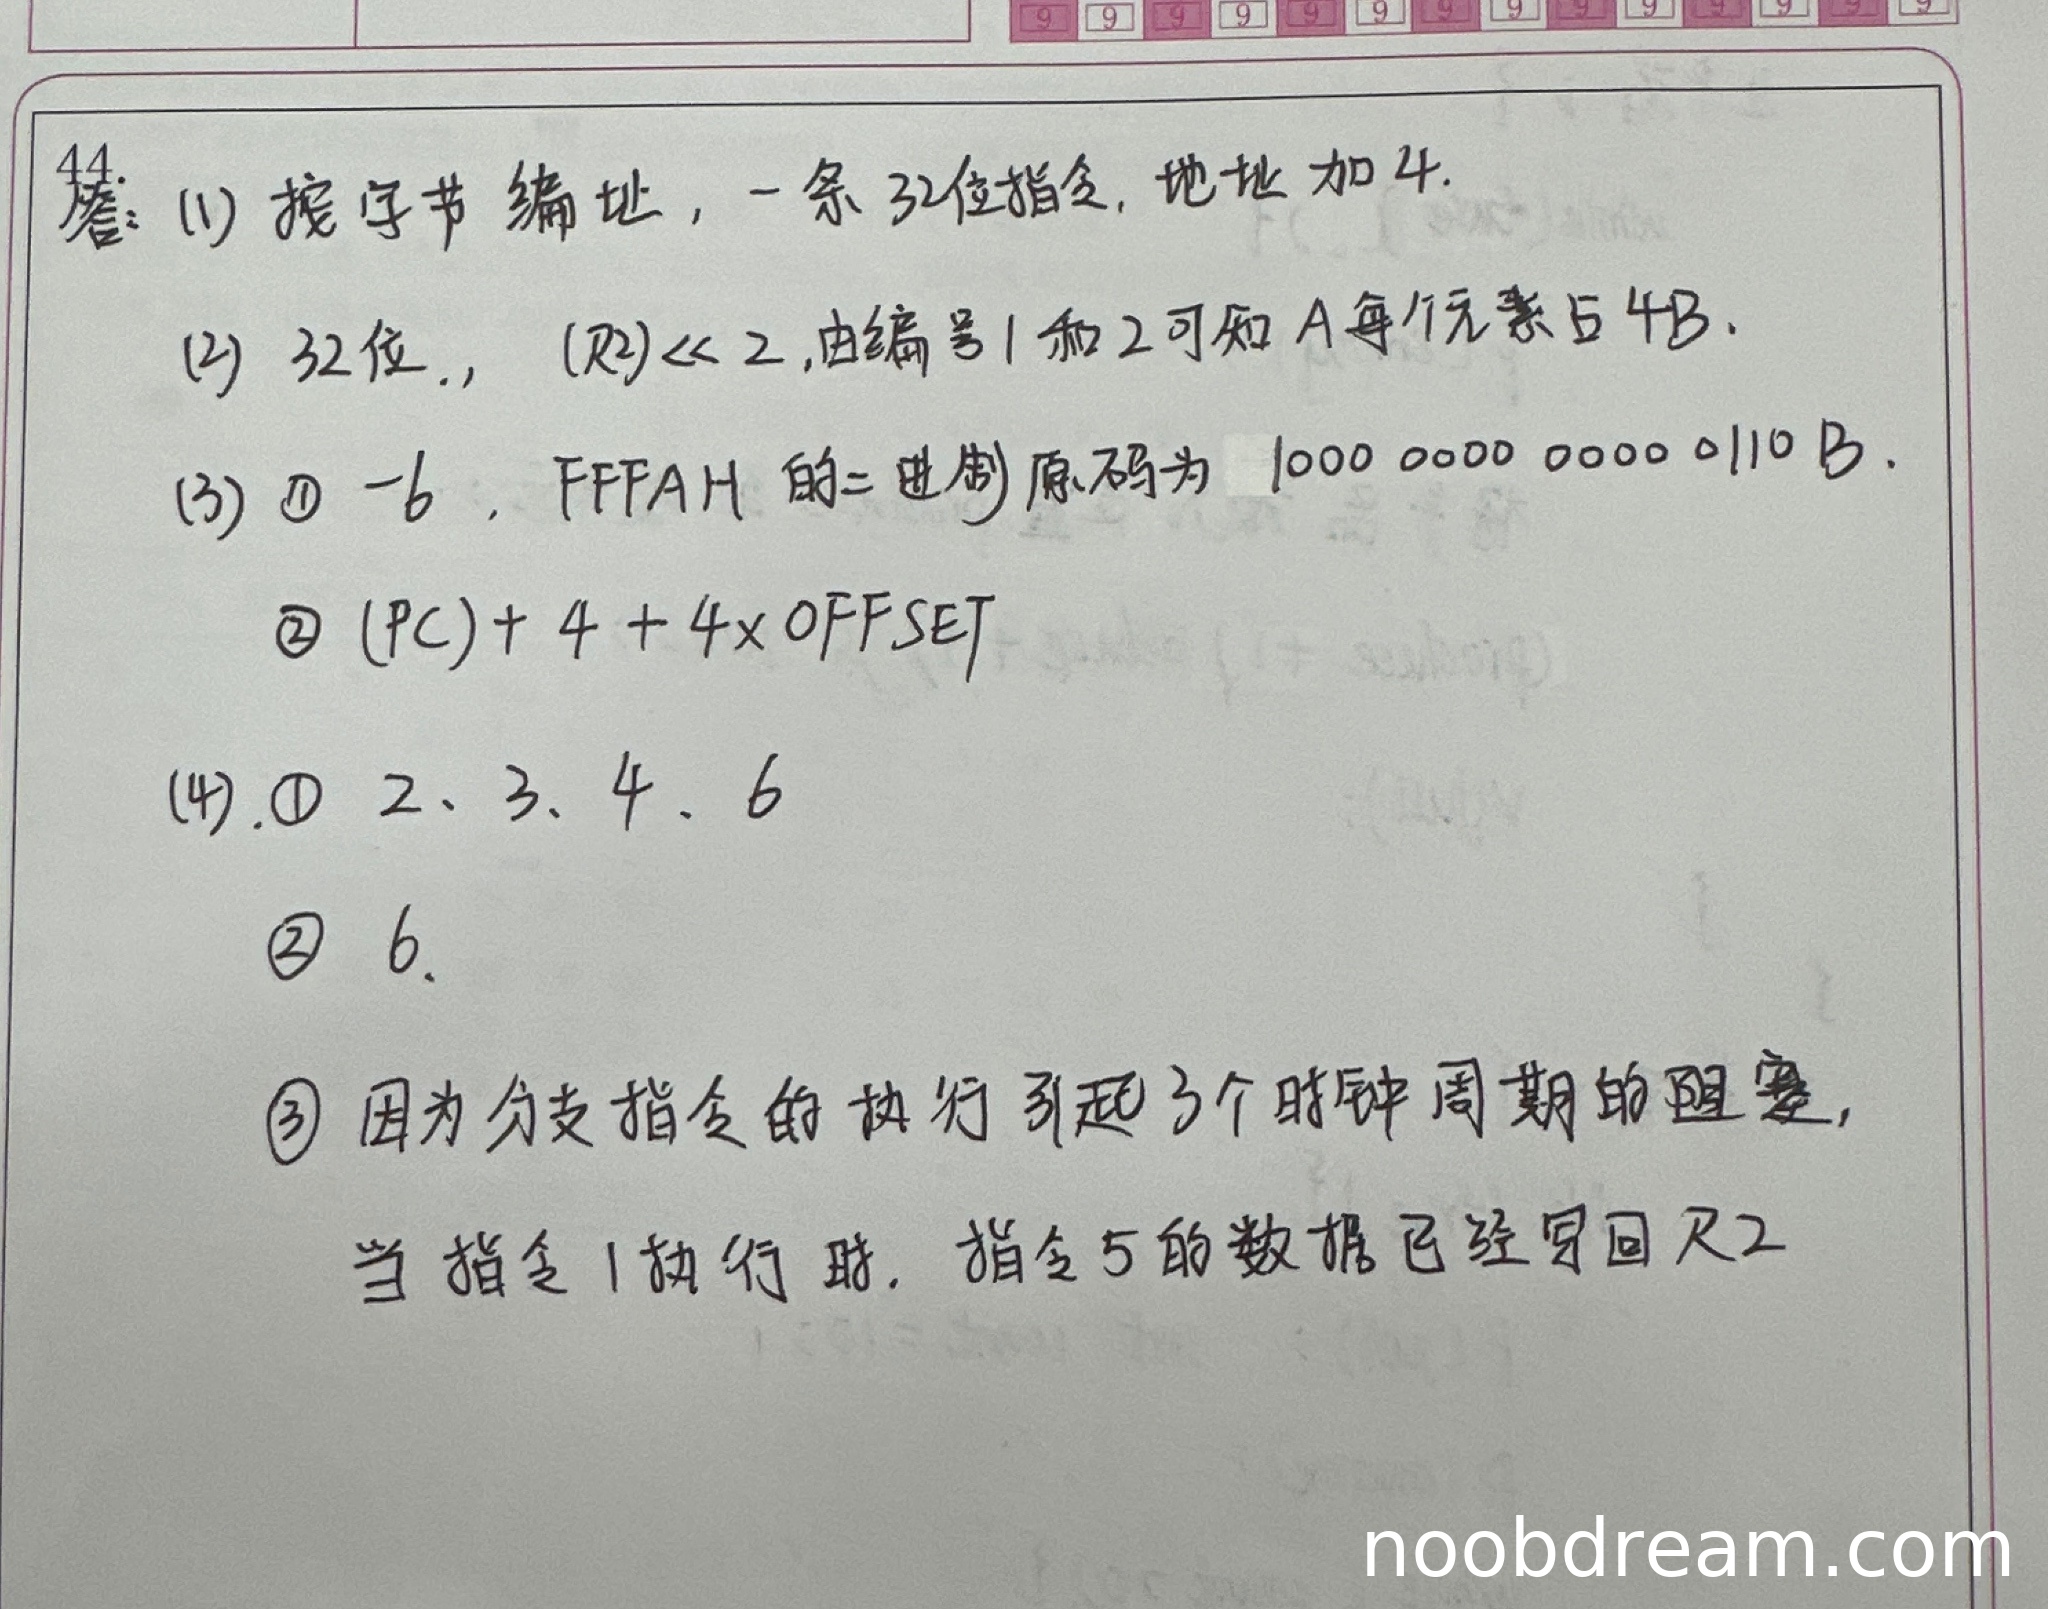 9 9 9 9 9 9 9 9 9 9 9 9 9 9
44.
答: (1) 按字节编址, 一条32位指令, 地址加4.
(2) 32位., (R2)<<2, 由编号1和2可知A每个元素占4B.
(3) ① -6, FFFAH 的二进制原码为 1000 0000 0000 0110 B.
② (PC)+4+4×OFFSET
(4). ① 2、3、4、6
② 6.
③ 因为分支指令的执行引起3个时钟周期的阻塞,
当指令1执行时. 指令5的数据已经写回R2
noobdream.com